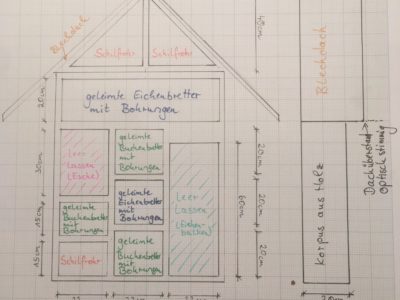 Blechdach
Schilfrohr
Schilfrohr
40cm
Blechdach
20cm
geleimte Eichenbretter
mit Bohrungen
30cm
Leer
Lassen
(Esche)
geleimte
Buchenbretter
mit
Bohrungen
20cm
Leer
Lassen
(Eichen-
balken)
60cm
15cm
geleimte
Buchenbretter
mit
Bohrungen
geleimte
Buchenbretter
mit
Bohrungen
20cm
15cm
Schilfrohr
geleimte
Buchenbretter
mit
Bohrungen
20cm
Korpus aus Holz
Dachüberstand
optisch stimmig